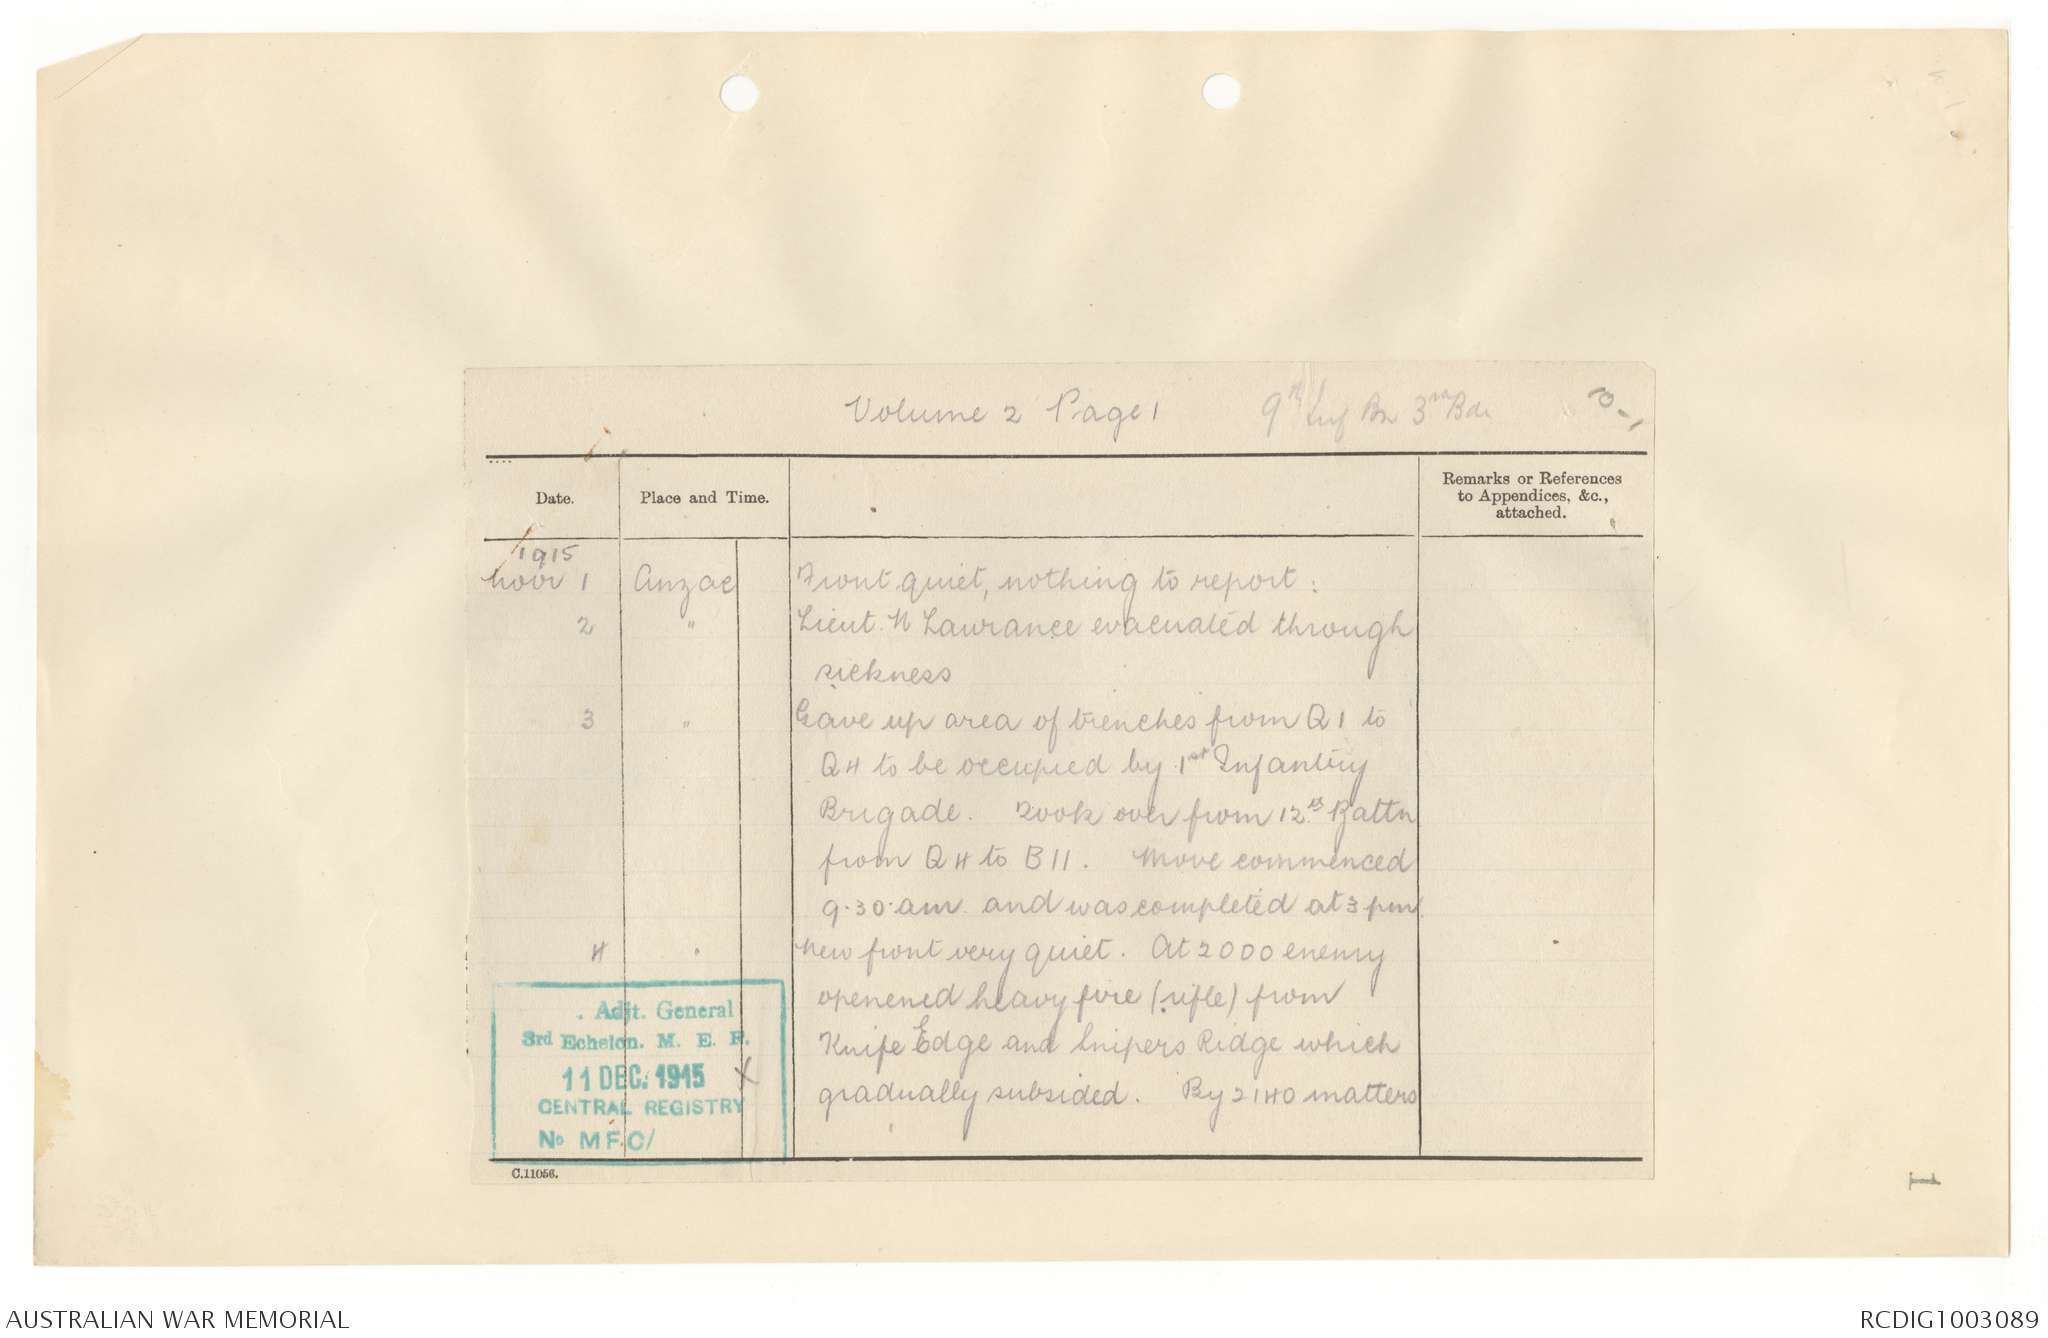 Volume 2 Page 1
9th Inf Bn 3rd Bde
Date.
Place and Time.
Remarks or References
to Appendices, &c.,
attached.
1915
Novr 1 Anzac Front quiet, nothing to report:
2 " Lieut. N Lawrance evacuated through
sickness
3 " Gave up area of trenches from Q1 to
Q4 to be occupied by 1st Infantry
Brigade. Took over from 12th Battn
from Q4 to B11. Move commenced
9.30.am. and was completed at 3 pm
4 " New front very quiet. At 2000 enemy
openened heavy fire (rifle) from
Knife Edge and Snipers Ridge which
gradually subsided. By 2140 matters
. Adjt. General
3rd Echelon. M. E. F.
11 DEC. 1915 X
CENTRAL REGISTRY
No MFC/
C.11056.
1
AUSTRALIAN WAR MEMORIAL
RCDIG1003089